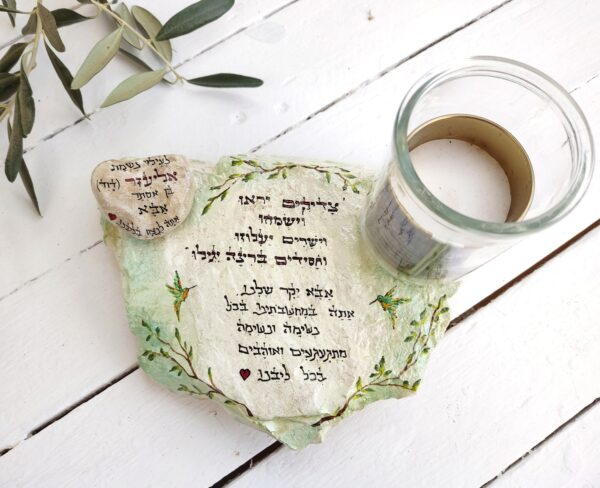 לעילוי נשמת
אליעזר (דוד)
בן אסתר
אבא
אתה לנצח בליבנו
"צדיקים יראו
וישמחו
וישרים יעלוזו
וחסידים ברנה יגילו"
אבא יקר שלנו.
אתה במחשבתינו בכל
נשימה ונשימה
מתגעגעים ואוהבים
בכל ליבנו